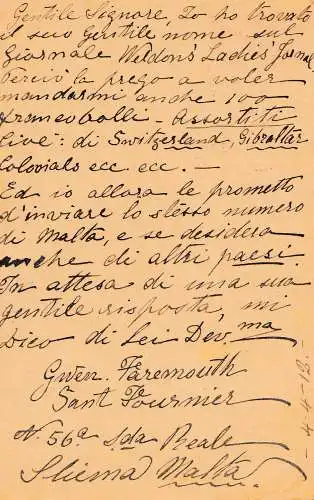 Gentile Signore, Io ho trovato
il suo gentile nome sul
giornale Weldon's Ladies' Jornal
percivi la prego a voler
mandarmi anche 100
francobolli - Assortiti
civé: di Switzerland, Gibraltar
Colonials ecc. ecc. -
Ed io allora le prometto
d'inviare lo stesso numero
di Malta, e se desidera
anche di altri paesi.
In attesa di una sua
gentile risposta, mi
Dico di Lei Dev.ma
Gwen. Faremouth
Sant Fournier
N. 56a Sda Reale
Sliema Malta.